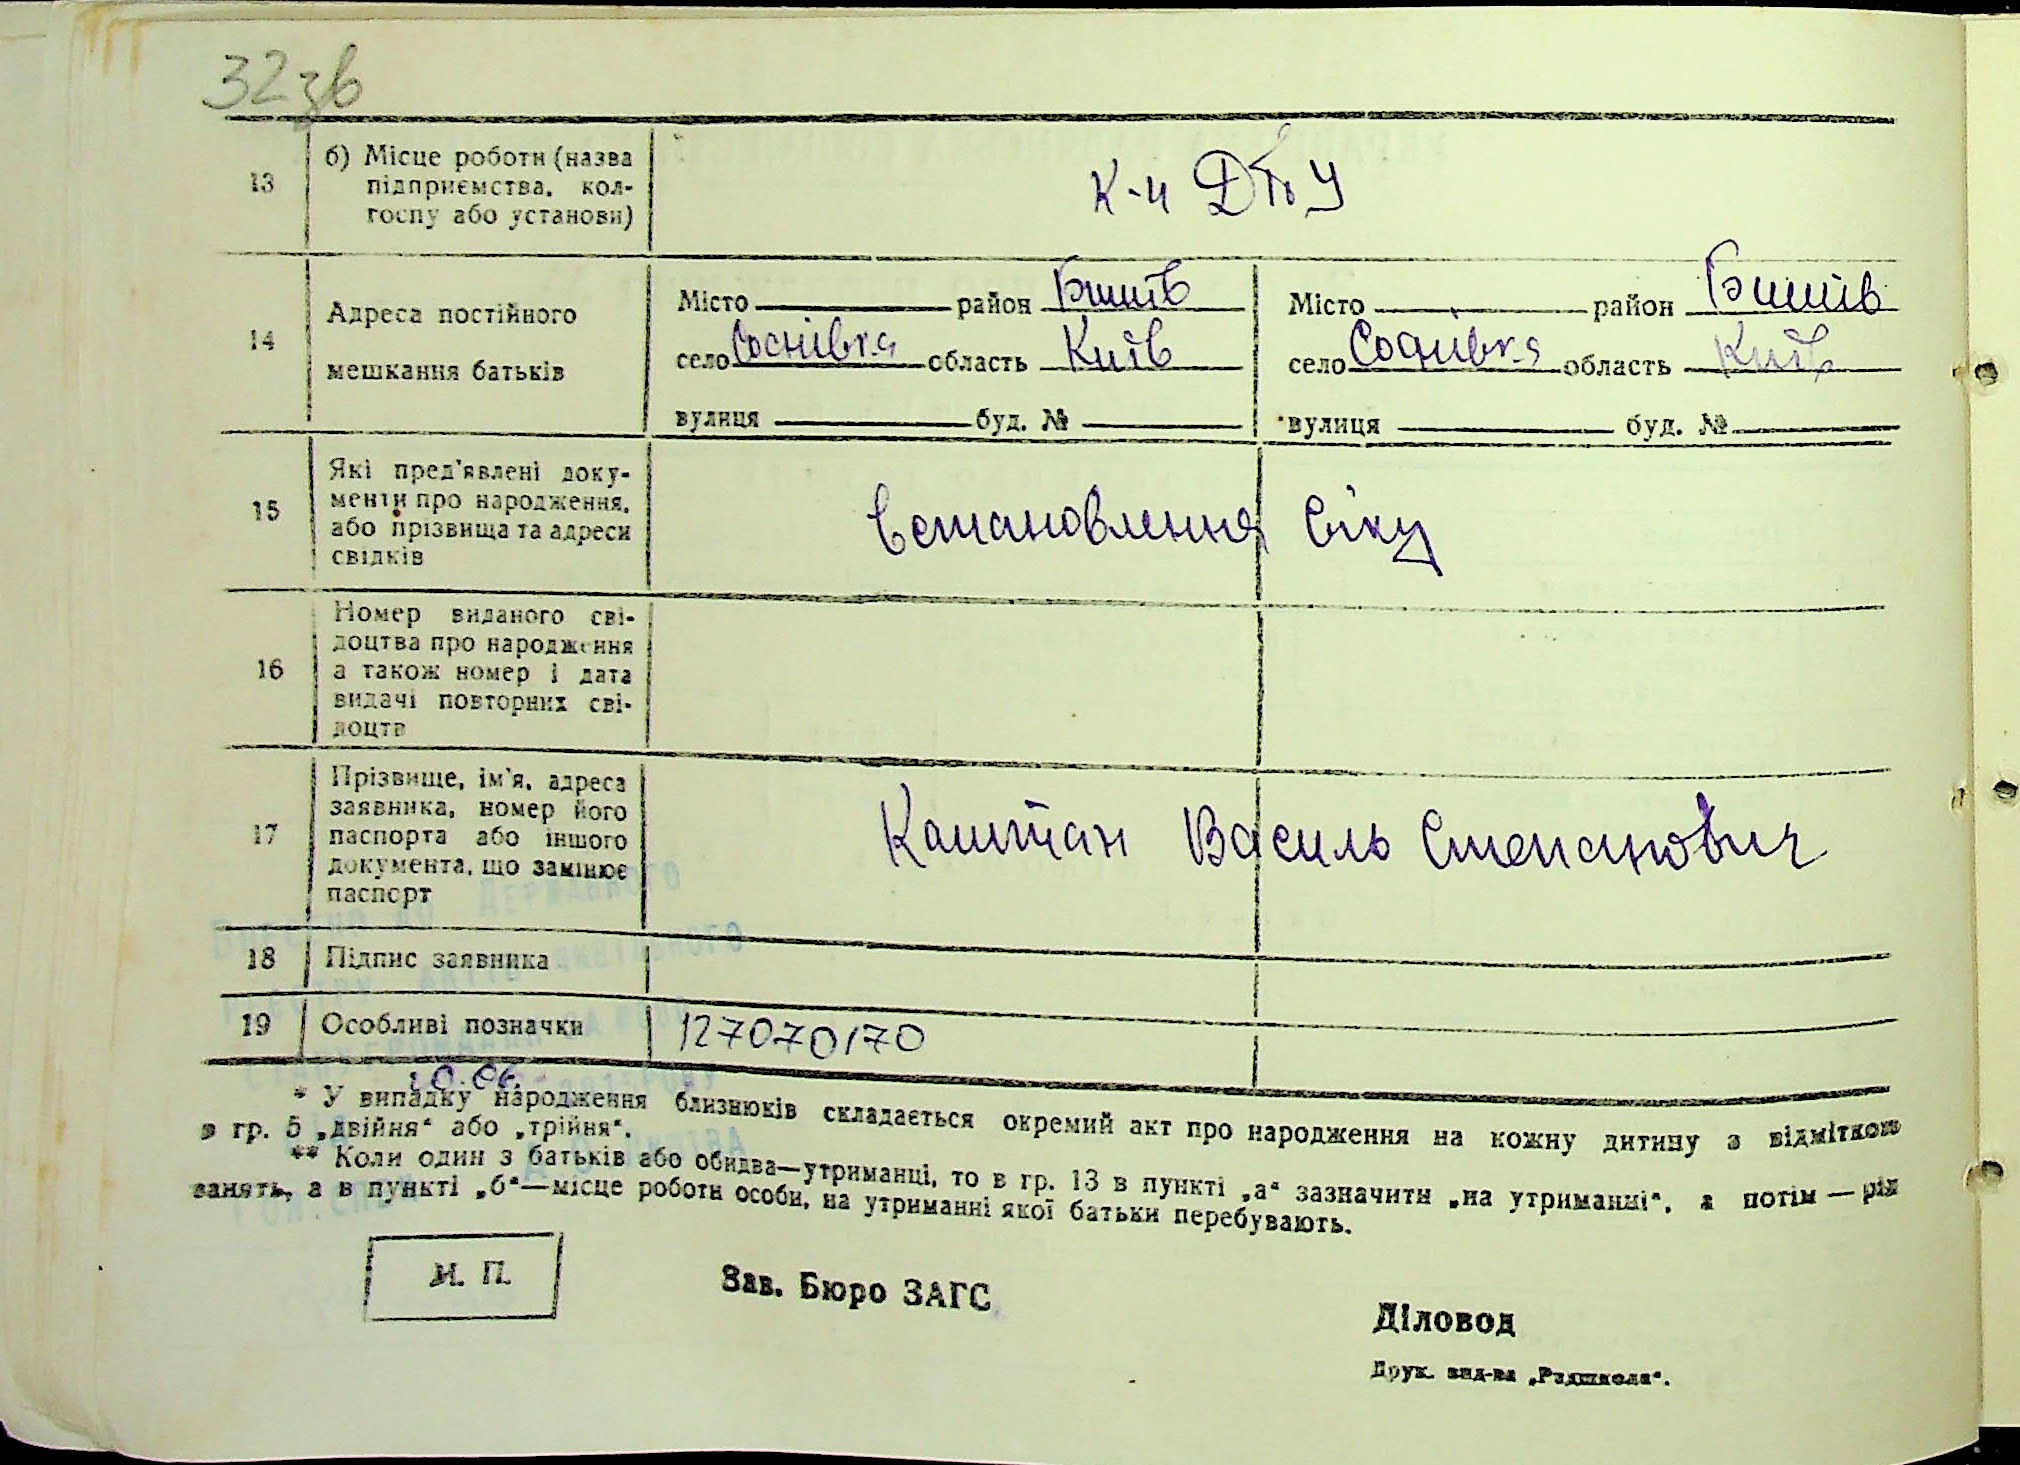 32зв
13
б) Місце роботи (назва
підприємства, кол-
госпу або установи)
к-п
14
Адреса постійного
мешкання батьків
Місто район Бишів
село Соснівка область Київ
вулиця буд. №
Місто район Бишів
село Соснівка область Київ
вулиця буд. №
15
Які пред'явлені доку-
менти про народження,
або прізвища та адреси
свідків
Встановлення віку
16
Номер виданого сві-
доцтва про народження
а також номер і дата
видачі повторних сві-
доцтв
17
Прізвище, ім'я, адреса
заявника, номер його
паспорта або іншого
документа, що замінює
паспорт
Каштан Василь Степанович
18
Підпис заявника
19
Особливі позначки
127070170
* У випадку народження близнюків складається окремий акт про народження на кожну дитину з відміткою
в гр. 5 „двійня“ або „трійня“.
** Коли один з батьків або обидва—утриманці, то в гр. 13 в пункті „а“ зазначити „на утриманні“, а потім — рід
занять, а в пункті „б“—місце роботи особи, на утриманні якої батьки перебувають.
М. П.
Зав. Бюро ЗАГС
Діловод
Друк. вид-ва „Радшкола“.